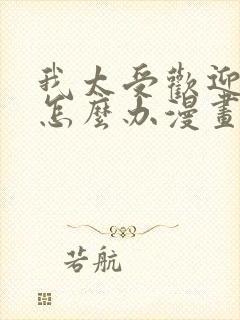 我太受歡迎
怎麼办漫畫
若航